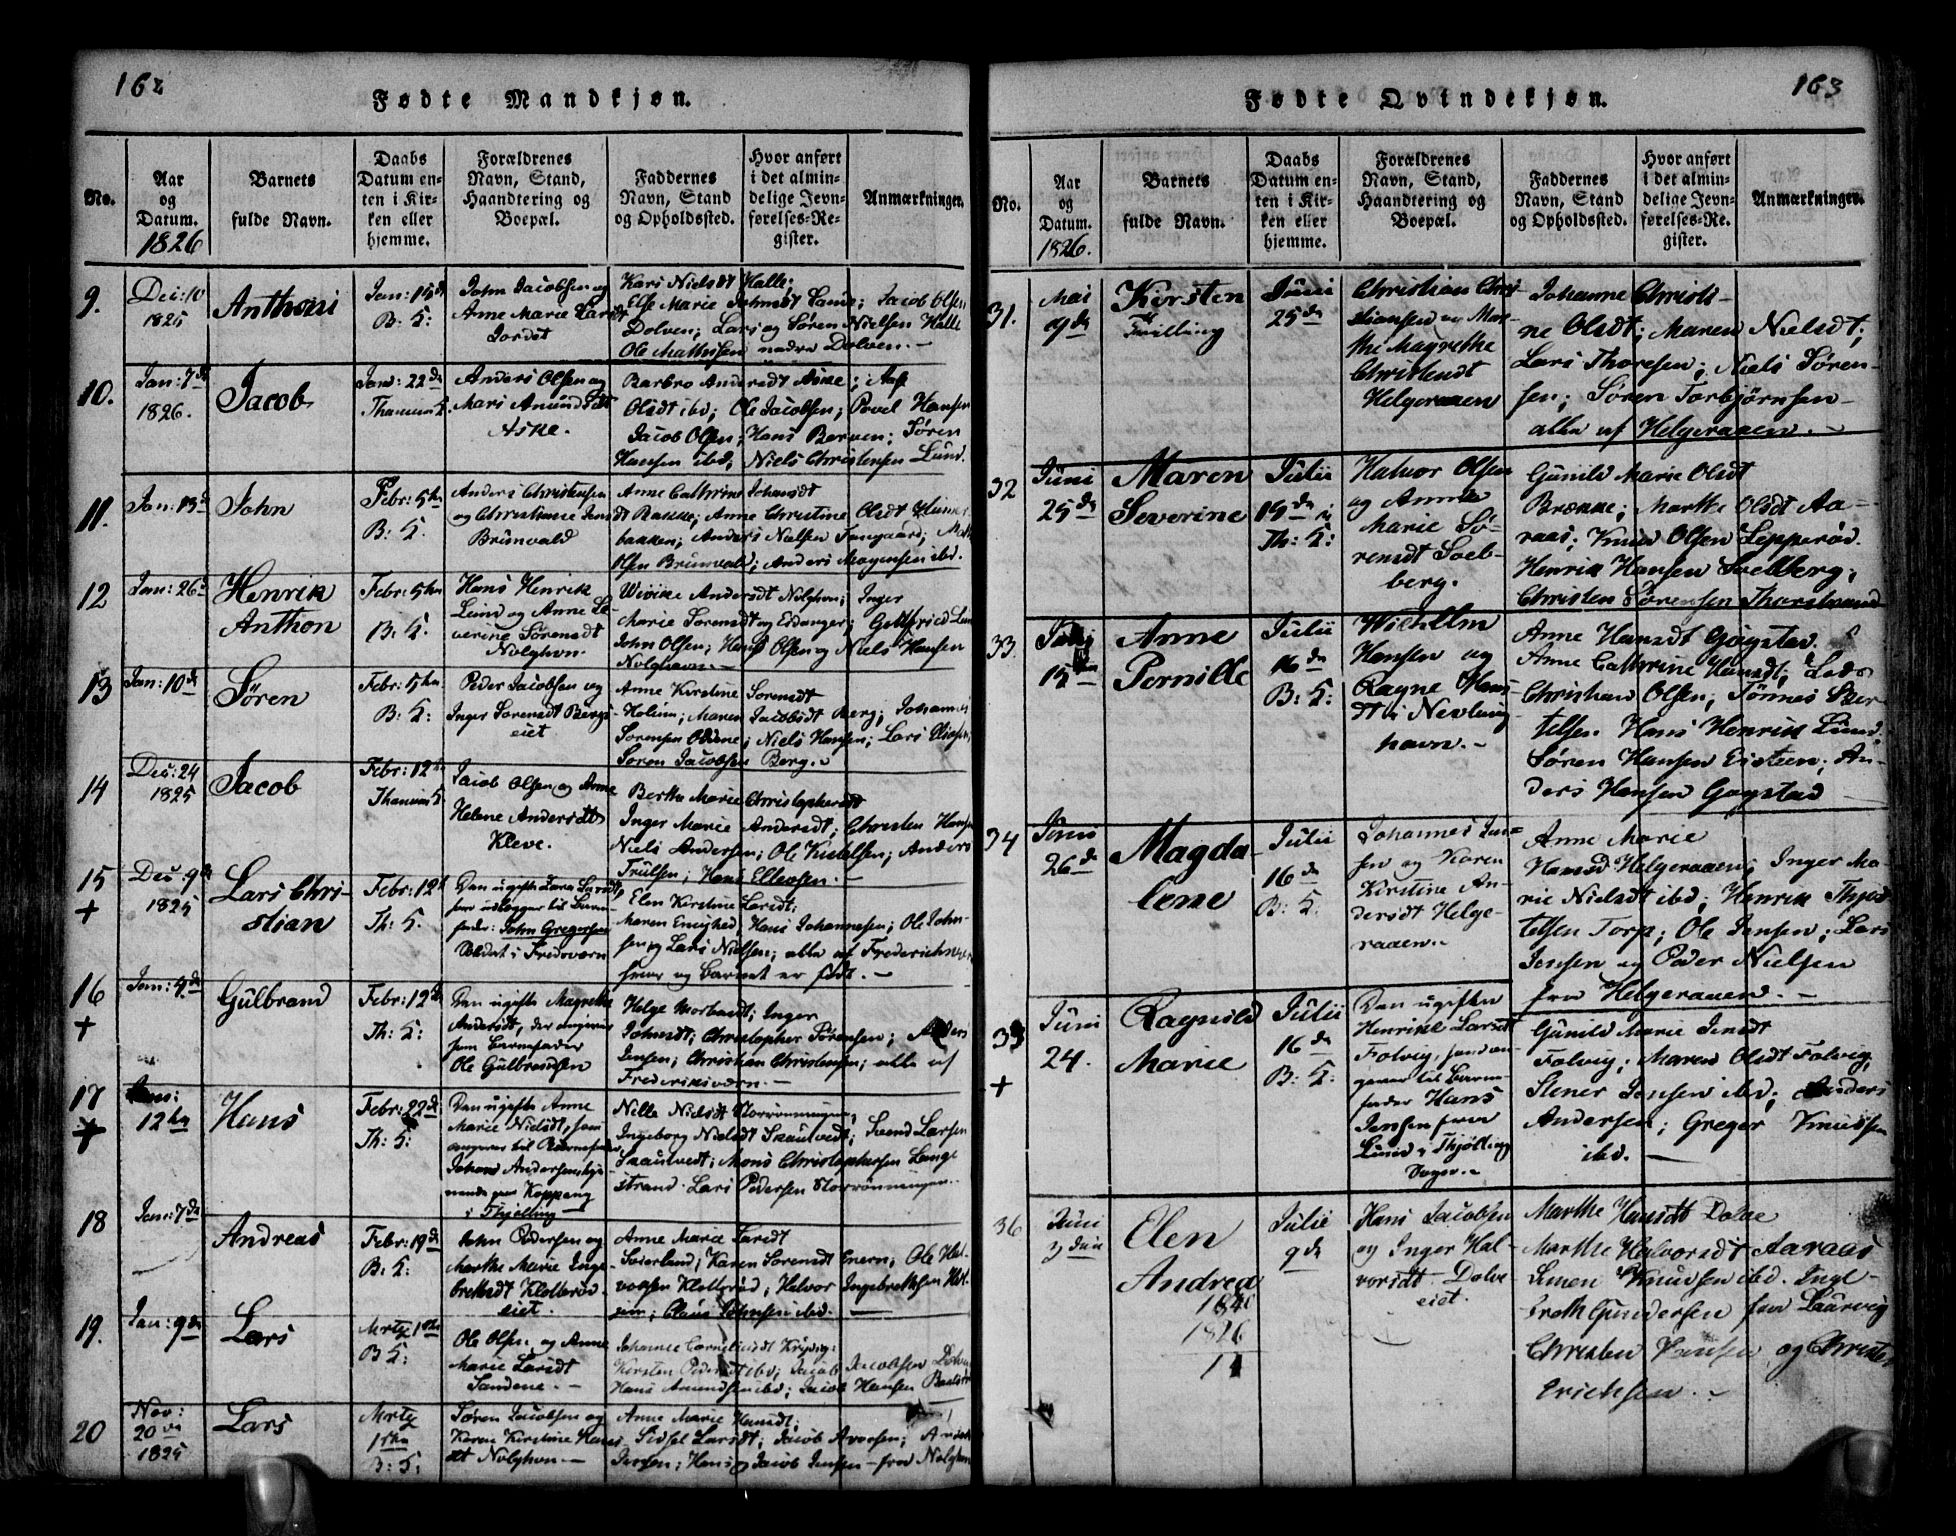 162
Fødte Mandkjøn.
No.
Aar
og
Datum.
1826
Barnets
fulde Navn.
Daabs
Datum en-
ten i Kir-
ken eller
hjemme.
Forældrenes
Navn, Stand,
Haandtering og
Boepæl.
Faddernes
Navn, Stand
og Opholdssted.
Hvor anført
i det almin-
delige Jevn-
førelses-Re-
gister.
Anmærkninger.
9.
Dec: 10
1825
Anthoni
Jan: 15de
B. K:
John Jacobsen og
Anne Marie Larsdt
Jordet
Kari Nielsdt Halle;
Else Marie Johnsdt Sande; Jacob Olsen
Dolven; Lars og Søren Nielsen Halle
Ole Mathisen nedre Dolven.
10.
Jan: 7de
1826.
Jacob
Jan: 22de
Thanum K
Anders Olsen og
Mari Amundsdt
Aske.
Barbro Andersdt Aske;
Olsdt ibd; Ole Jacobsen; Povel Hansen
Jacob Olsen; Hans Bergen; Søren
Hansen ibd; Niels Christensen Lund.
11.
Jan: 13de
John
Febr: 5te
B: K:
Anders Christensen
og Christiane Jens
dt
Brunvald
Anne Cathrine Johansdt
Bakke; Anne Christine Olsdt
bakken; Anders Nielsen
Olsen Brunvald; Anders Mogensen ibd.
12
Jan: 26de
Henrik
Anthon
Febr: 5te
B. K.
Hans Henrik
Lund og Anne Se-
verine Sørensdt
Nølghvn.
Wivike Andersdt Nølghvn; Inger
Marie Sørensdt og Eidanger; Gottfried Lund
John Olsen; Hans Olsen og Niels Hansen
Nølghavn.
13
Jan: 10de
Søren
Febr: 5te
B: K:
Peder Jacobsen og
Inger Sørensdt Bergs-
eiet
Anne Kirstine Sørensdt
Holum; Maren Jacobsdt Berg; Johannes
Sørensen; Niels Hansen; Lars Eliasen;
Søren Jacobsen Berg.
14
Dec: 24
1825
Jacob
Febr: 12te
Thanum K
Jacob Olsen og Anne
Helene Andersdt
Kleve.
Berthe Marie Christophersdt
Inger Marie Andersdt; Christen Hansen
Niels Andersen; Ole Kittelsen; Anders
Trulsen; Hans Ellevsen.
15
+
Dec: 9de
1825
Lars Chri-
stian
Febr: 12te
Th: K.
Den ugifte
som udlegger til Barne-
fader: John Gregersen
i Fredsværn
Elen Kirstine Larsdt;
Maren Enighed; Hans Johannesen; Ole John-
sen og Lars Nielsen; alle af Frederichsværn
hvor og Barnet er født.
16
+
Jan: 4de
Gulbrand
Febr: 12te
Th: K:
Den ugifte Magrethe
Andersdt, der angiver
som Barnefader
Ole Gulbrandsen
Helge Morbardt; Inger
Johnsdt; Christopher Sørensen; Anders
Jensen; Christian Christensen; alle af
Frederiksværn.
17
+
Jan:
12te
Hans
Febr: 22de
Th: K:
Den ugifte Anne
Marie Nielsdt, som
angiver til Barnefader
Johan Andersen
Koppang
i Thjølling
Nille Nielsdt Storrønningen;
Ingeborg Nielsdt Skautvedt; Svend Larsen
Skautvedt; Mons Christophersen Lange
strand. Lars Pedersen Storrønningen.
18
Jan: 7de
Andreas
Febr: 19de
B. K:
John Pedersen og
Marthe Marie Inge
bretsdt Klotterød
eiet.
Anne Marie Larsdt
Seierland; Karen Sørensdt Enern; Ole Hal-
vorsen Klotterød; Halvor Ingebrethsen
Claus Johnsen ibd.
19.
Jan: 9de
Lars
Mrtz 1ste
B K:
Ole Olsen og Anne
Marie Larsdt
Sandene.
Johanne Corneliusdt
Kirsten Pedersdt ibd; Jacob Jacobsen
Hans Amundsen ibd; Jacob Hansen
20
Nov:
20de
1825
Lars
Mrtz
1ste
B: K:
Søren Jacobsen og
Karen Kirstine Hans
dt Nølghvn.
Anne Marie Hansdt;
Sidsel Larsdt; Jacob Avorsen;
Iversen; Hans og Jacob Jensen fra Nølghvn
163
Fødte Qvindekjøn.
No.
Aar
og
Datum.
1826.
Barnets
fulde Navn.
Daabs
Datum en-
ten i Kir-
ken eller
hjemme.
Forældrenes
Navn, Stand,
Haandtering og
Boepæl.
Faddernes
Navn, Stand
og Opholdssted.
Hvor anført
i det almin-
delige Jevn-
førelses-Re-
gister.
Anmærkninger.
31.
Mai
9de
Kirsten
Tvilling
Juni
25de
Christian Chri-
stiansen og Mar-
the Magrethe
Christensdt
Helgeraaen
Johanne Christi-
ne Olsdt; Maren Nielsdt;
Lars Thoresen; Niels Søren-
sen; Søren Torbjørnsen
alle af Helgeraaen.
32
Juni
25de
Maren
Severine
Julii
15de i
Th: K:
Halvor Olsen
og Anne
Marie Sø-
rensdt Soel-
berg.
Gunild Marie Olsdt
Brække; Marthe Olsdt Aa-
raas; Knud Olsen Lepperød.
Henrik Hansen Soelberg;
Christen Sørensen Thorstrand
33.
Juni
15de
Anne
Pernille
Julii
16de
B: K:
Wilhelm
Hansen og
Ragne Hans-
dt i Nevlung-
havn.
Anne Hansdt Gogstad.
Anne Cathrine Hansdt;
Christian Olsen; Tønnes Ber-
telsen Hans Henrik Lund;
Søren Hansen Eisteen; An-
ders Hansen Gogstad
34
Juni
26de
Magda-
lene
Julii
16de
B: K.
Johannes Jen-
sen og Karen
Kirstine An-
dersdt Helge-
raaen.
Anne Marie
Hansd Helgeraaen; Inger Ma-
rie Nielsdt ibd; Henrik Thjod
telsen Torp; Ole Jensen; Lars
Jensen og Peder Nielsen
fra Helgeraaen.
35
+
Juni
24.
Ragnild
Marie
Julii
16de
B: K:
Den ugifte
Henrikke Larsdt
Folvig, som an-
giver til Barne-
fader Hans
Jensen fra
Lund i Thjølling
Sogn.
Gunild Marie Jensdt
Folvig; Maren Olsdt Folvig;
Stener Jensen ibd; Anders
Andersen; Greger Knudsen
ibd.
36
Juni
Elen
Andrea
1840
1826
14
Julie
9de
Hans Jacobsen
og Inger Hal-
vorsdt Dolve-
eiet.
Marthe Hansdt Dolve
Marthe Halvorsdt Aaraas
Simen Knudsen ibd. Inge-
breth Gundersen fra Laurvig
Christen Hansen og Christen
Erichsen.